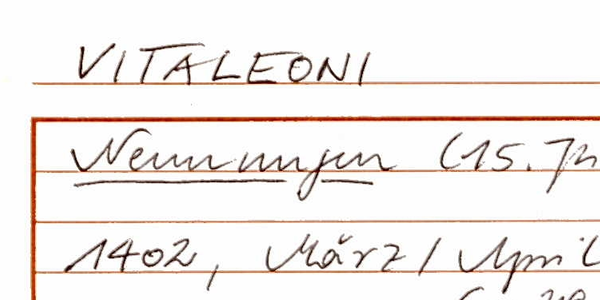 VITALEONI
Nennungen (15. Jh
1402, März / April